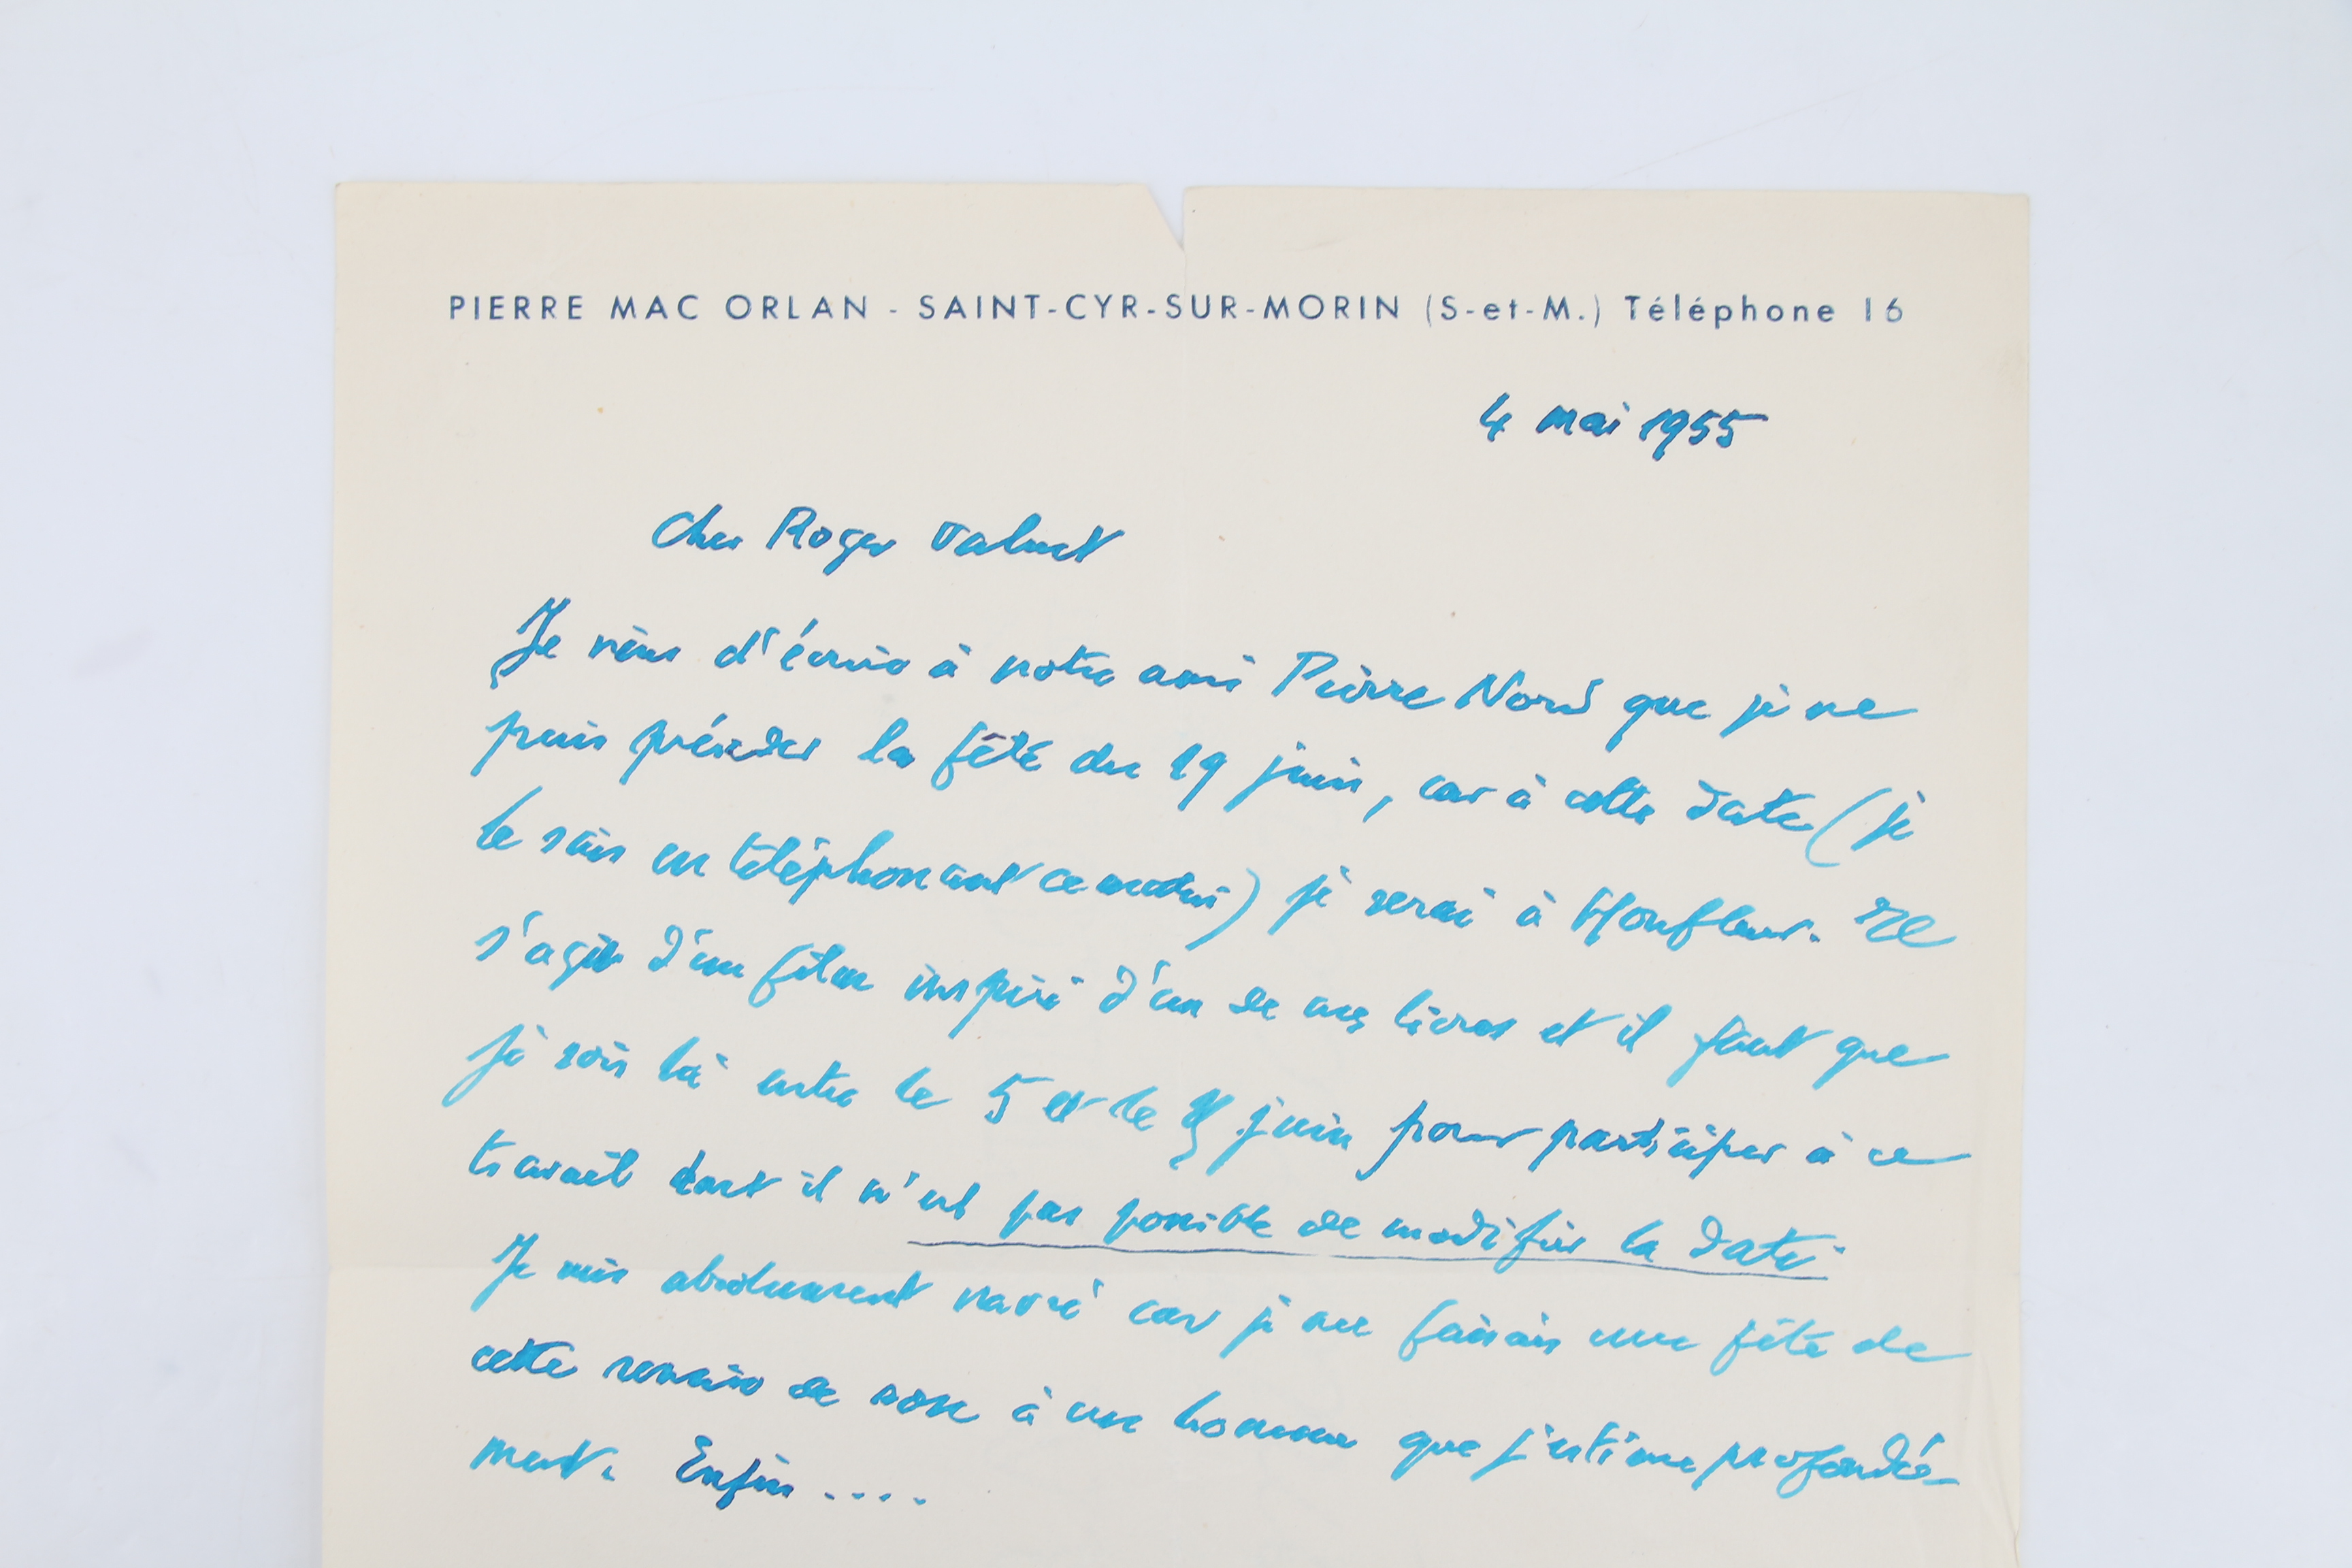 PIERRE MAC ORLAN - SAINT-CYR-SUR-MORIN (S-et-M.) Téléphone 16
4 mai 1955
Cher Roger
Je viens d'écrire à notre ami Pierre Nord que je ne
puis présider la fête du 19 juin, car à cette date (je
le sais en téléphonant ce matin) je serai à Honfleur. Il
s'agit d'un film inspiré d'un de mes livres et il faut que
je sois là entre le 5 et le juin pour participer à ce
travail dont il n'est pas possible de modifier la date.
Je suis absolument navré car je me faisais une fête de
cette remise de à un homme que j'estime profondé-
ment. Enfin ....